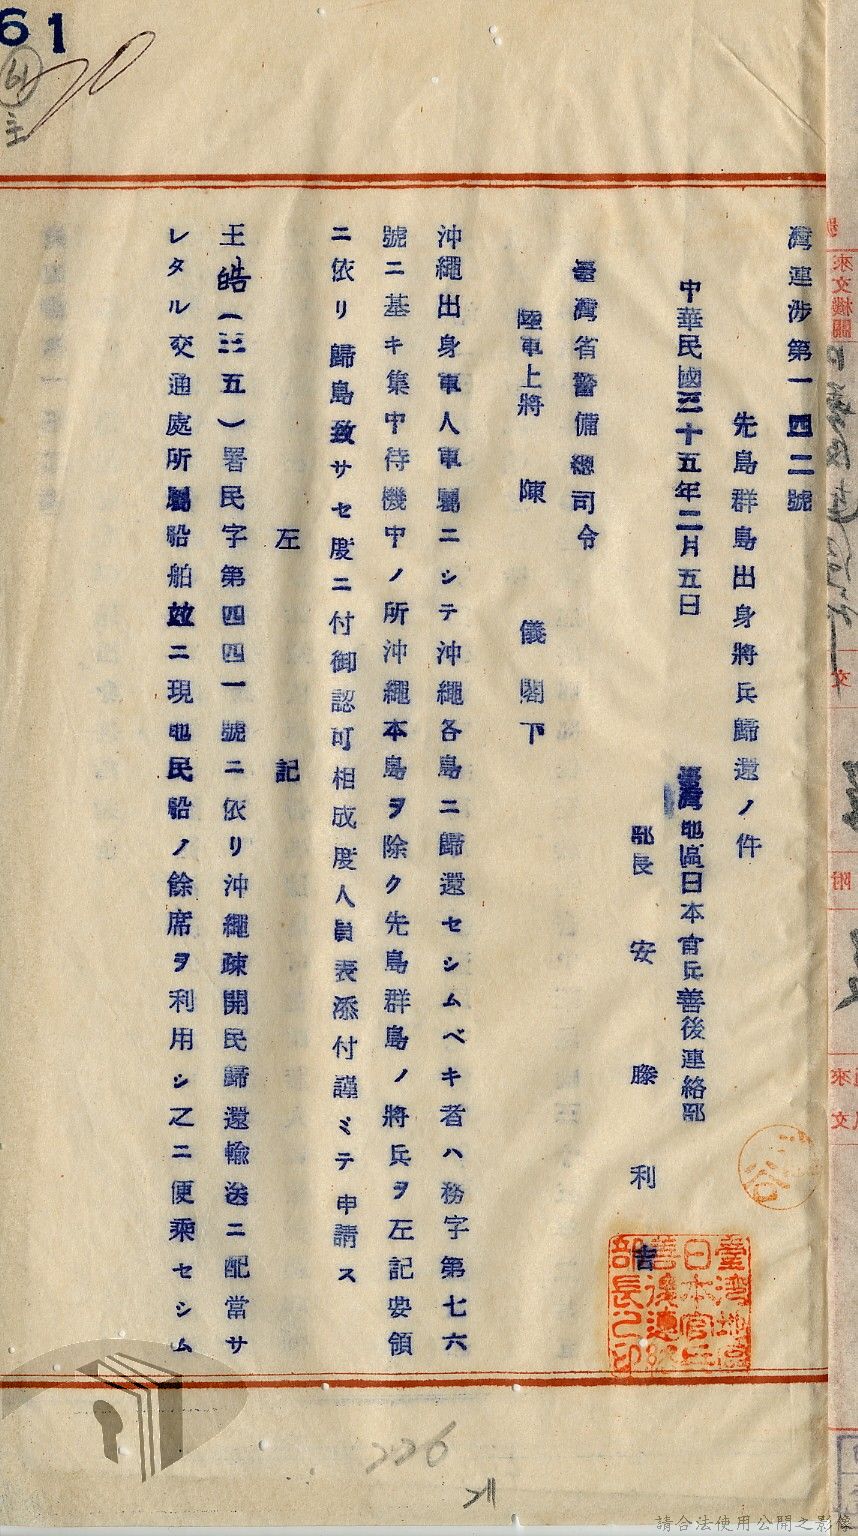 灣連涉第一四二號
先島群島出身將兵歸還ノ件
中華民國三十五年二月五日
臺灣地區日本官兵善後連絡部
部長 安藤利吉
臺灣省警備總司令
陸軍上將 陳 儀 閣下
沖繩出身軍人軍屬ニシテ沖繩各島ニ歸還セシムベキ者ハ務字第七六
號ニ基キ集中待機中ノ所沖繩本島ヲ除ク先島群島ノ將兵ヲ左記要領
ニ依リ歸島致サセ度ニ付御認可相成度人員表添付謹ミテ申請ス
左 記
王皓(三五)署民字第四四一號ニ依リ沖繩疎開民歸還輸送ニ配當サ
レタル交通處所屬船舶竝ニ現地民船ノ餘席ヲ利用シ之ニ便乘セシム
臺灣地區
日本官兵
善後連絡
部長之印
61
61
主
226
來文機關
文
附
來文
請合法使用公開之影像